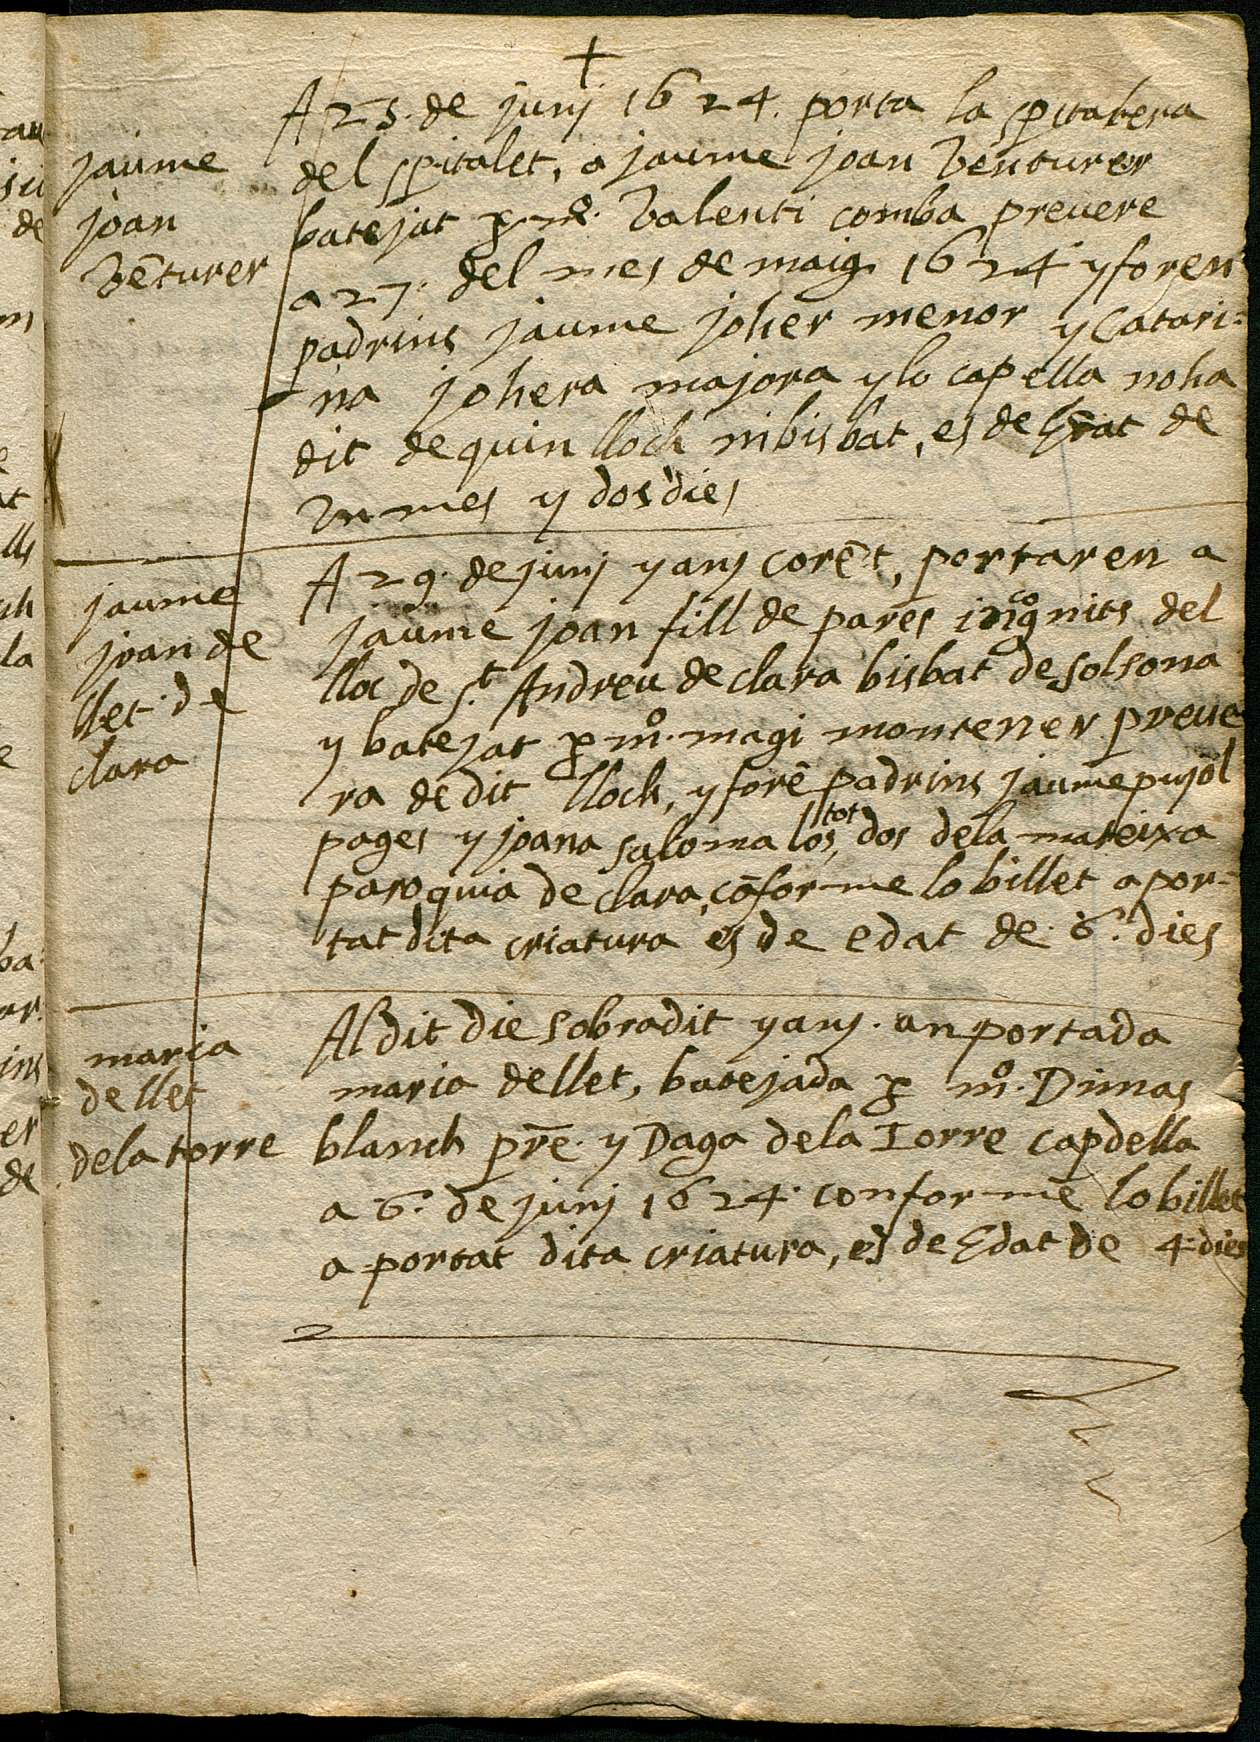 +
jaume
joan
Vēturer
A 25. de junj 1624. porta la spitalera
del spitalet, a jaume joan Venturer
batejat p mº. Valenti comba prevere
a 27. del mes de maig 1624 y foren
padrins jaume joher menor y Catari-
na johera majora y lo capella no ha
dit de quin lloch ni bisbat, es de Edat de
Vn mes y dos dies
jaume
joan de
llet. de
clara
A 29. de junj y anj corēt, portaren a
jaume joan fill de pares incognits del
lloc de S.t Andreu de clara bisbat de solsona
y batejat p mº. magi montener preve
ra de dit lloch, y forē padrins jaume pujol
pages y joana saloma los tot dos dela mateixa
paroquia de clara, cōforme lo billet a por-
tat dita criatura es de edat de 6. dies
maria
de llet
de la torre
Al dit die sobradit y anj. an portada
maria de llet, batejada p mº. Dimas
blanch prē. y Daga dela Torre capdella
a 6. de junj 1624. conforme lo billet
a portat dita criatura, es de Edat de 4. dies